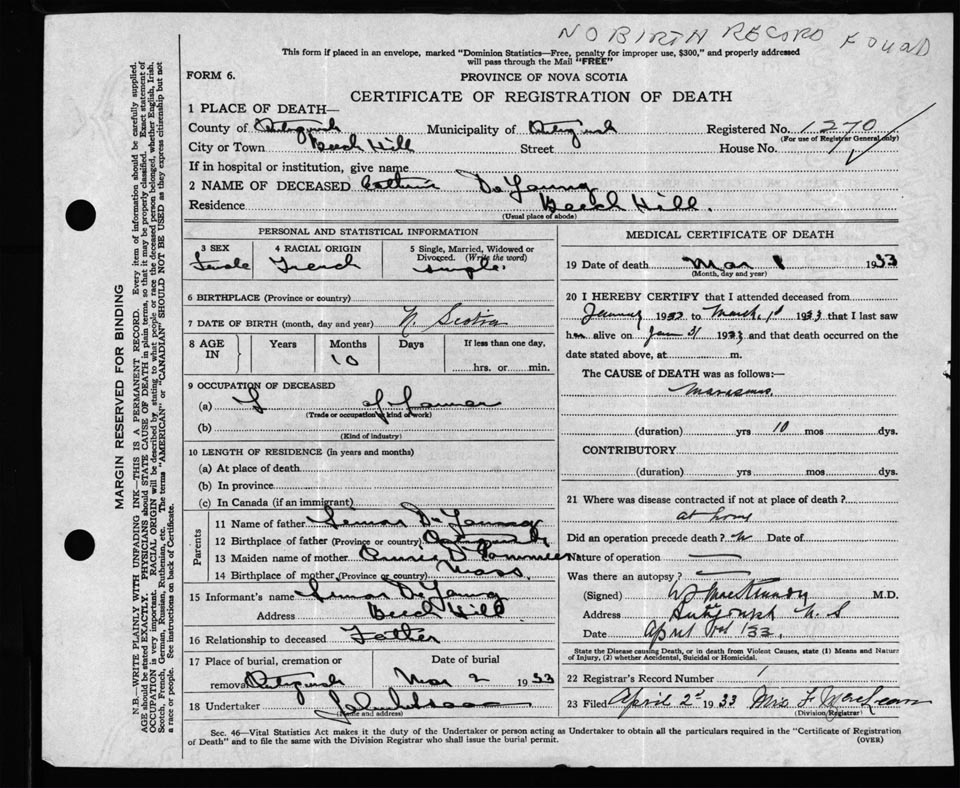 NO BIRTH RECORD FOUND
This form if placed in an envelope, marked "Dominion Statistics—Free, penalty for improper use, $300," and properly addressed
will pass through the Mail "FREE"
FORM 6.
PROVINCE OF NOVA SCOTIA
CERTIFICATE OF REGISTRATION OF DEATH
1 PLACE OF DEATH—
County of Antigonish Municipality of Antigonish Registered No. 1270
(For use of Registrar General only)
City or Town Beech Hill Street House No.
If in hospital or institution, give name
2 NAME OF DECEASED De Young
Residence Beech Hill.
(Usual place of abode)
PERSONAL AND STATISTICAL INFORMATION
3 SEX 4 RACIAL ORIGIN 5 Single, Married, Widowed or
Divorced. (Write the word)
Female French single
6 BIRTHPLACE (Province or country)
7 DATE OF BIRTH (month, day and year) N. Scotia
8 AGE IN Years Months Days If less than one day,
10 hrs. or min.
9 OCCUPATION OF DECEASED
(a) of Farmer
(Trade or occupation or kind of work)
(b)
(Kind of industry)
10 LENGTH OF RESIDENCE (in years and months)
(a) At place of death
(b) In province
(c) In Canada (if an immigrant)
Parents
11 Name of father Simon De Young
12 Birthplace of father (Province or country) Antigonish
13 Maiden name of mother Annie
14 Birthplace of mother (Province or country) Mass.
15 Informant's name Simon De Young
Address Beech Hill
16 Relationship to deceased Father
17 Place of burial, cremation or Date of burial
removal Antigonish Mar 2 1933
18 Undertaker
(Name and address)
MEDICAL CERTIFICATE OF DEATH
19 Date of death Mar 1 1933
(Month, day and year)
20 I HEREBY CERTIFY that I attended deceased from
January 193 to March 1st 1933 that I last saw
h alive on Jan 31 1933 and that death occurred on the
date stated above, at m.
The CAUSE of DEATH was as follows:—
Marasmus.
(duration) yrs 10 mos dys.
CONTRIBUTORY
(duration) yrs mos dys.
21 Where was disease contracted if not at place of death?
at home
Did an operation precede death? Date of
Nature of operation
Was there an autopsy?
(Signed) M.D.
Address Antigonish N.S
Date April 1st 33.
State the Disease causing Death, or in death from Violent Causes, state (1) Means and Nature
of Injury, (2) whether Accidental, Suicidal or Homicidal.
22 Registrar's Record Number 1
23 Filed April 2d 1933 Mrs F MacLean
(Division Registrar)
Sec. 46—Vital Statistics Act makes it the duty of the Undertaker or person acting as Undertaker to obtain all the particulars required in the "Certificate of Registration
of Death" and to file the same with the Division Registrar who shall issue the burial permit.
(OVER)
MARGIN RESERVED FOR BINDING
N.B.—WRITE PLAINLY WITH UNFADING INK—THIS IS A PERMANENT RECORD. Every item of information should be carefully supplied.
AGE should be stated EXACTLY. PHYSICIANS should STATE CAUSE OF DEATH in plain terms, so that it may be properly classified. Exact statement of
OCCUPATION is very important. RACIAL ORIGIN will be described by stating to what people or race the deceased person belonged, whether English, Irish,
Scotch, French, German, Russian, Ruthenian, etc. The terms "AMERICAN" or "CANADIAN" SHOULD NOT BE USED as they express citizenship but not
a race or people. See instructions on back of Certificate.